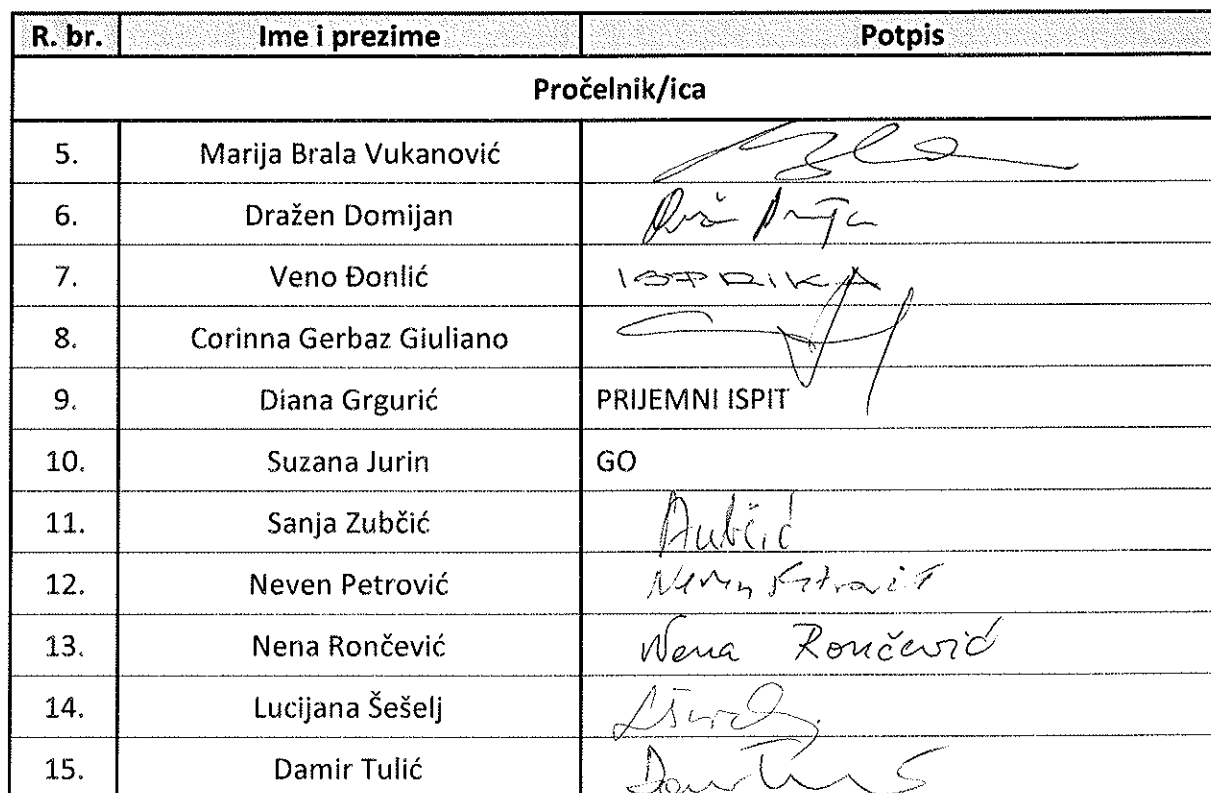 R. br. Ime i prezime Potpis
Pročelnik/ica
5. Marija Brala Vukanović
6. Dražen Domijan
7. Veno Đonlić ISPRIKA
8. Corinna Gerbaz Giuliano
9. Diana Grgurić PRIJEMNI ISPIT
10. Suzana Jurin GO
11. Sanja Zubčić
12. Neven Petrović Neven Petrović
13. Nena Rončević Nena Rončević
14. Lucijana Šešelj
15. Damir Tulić